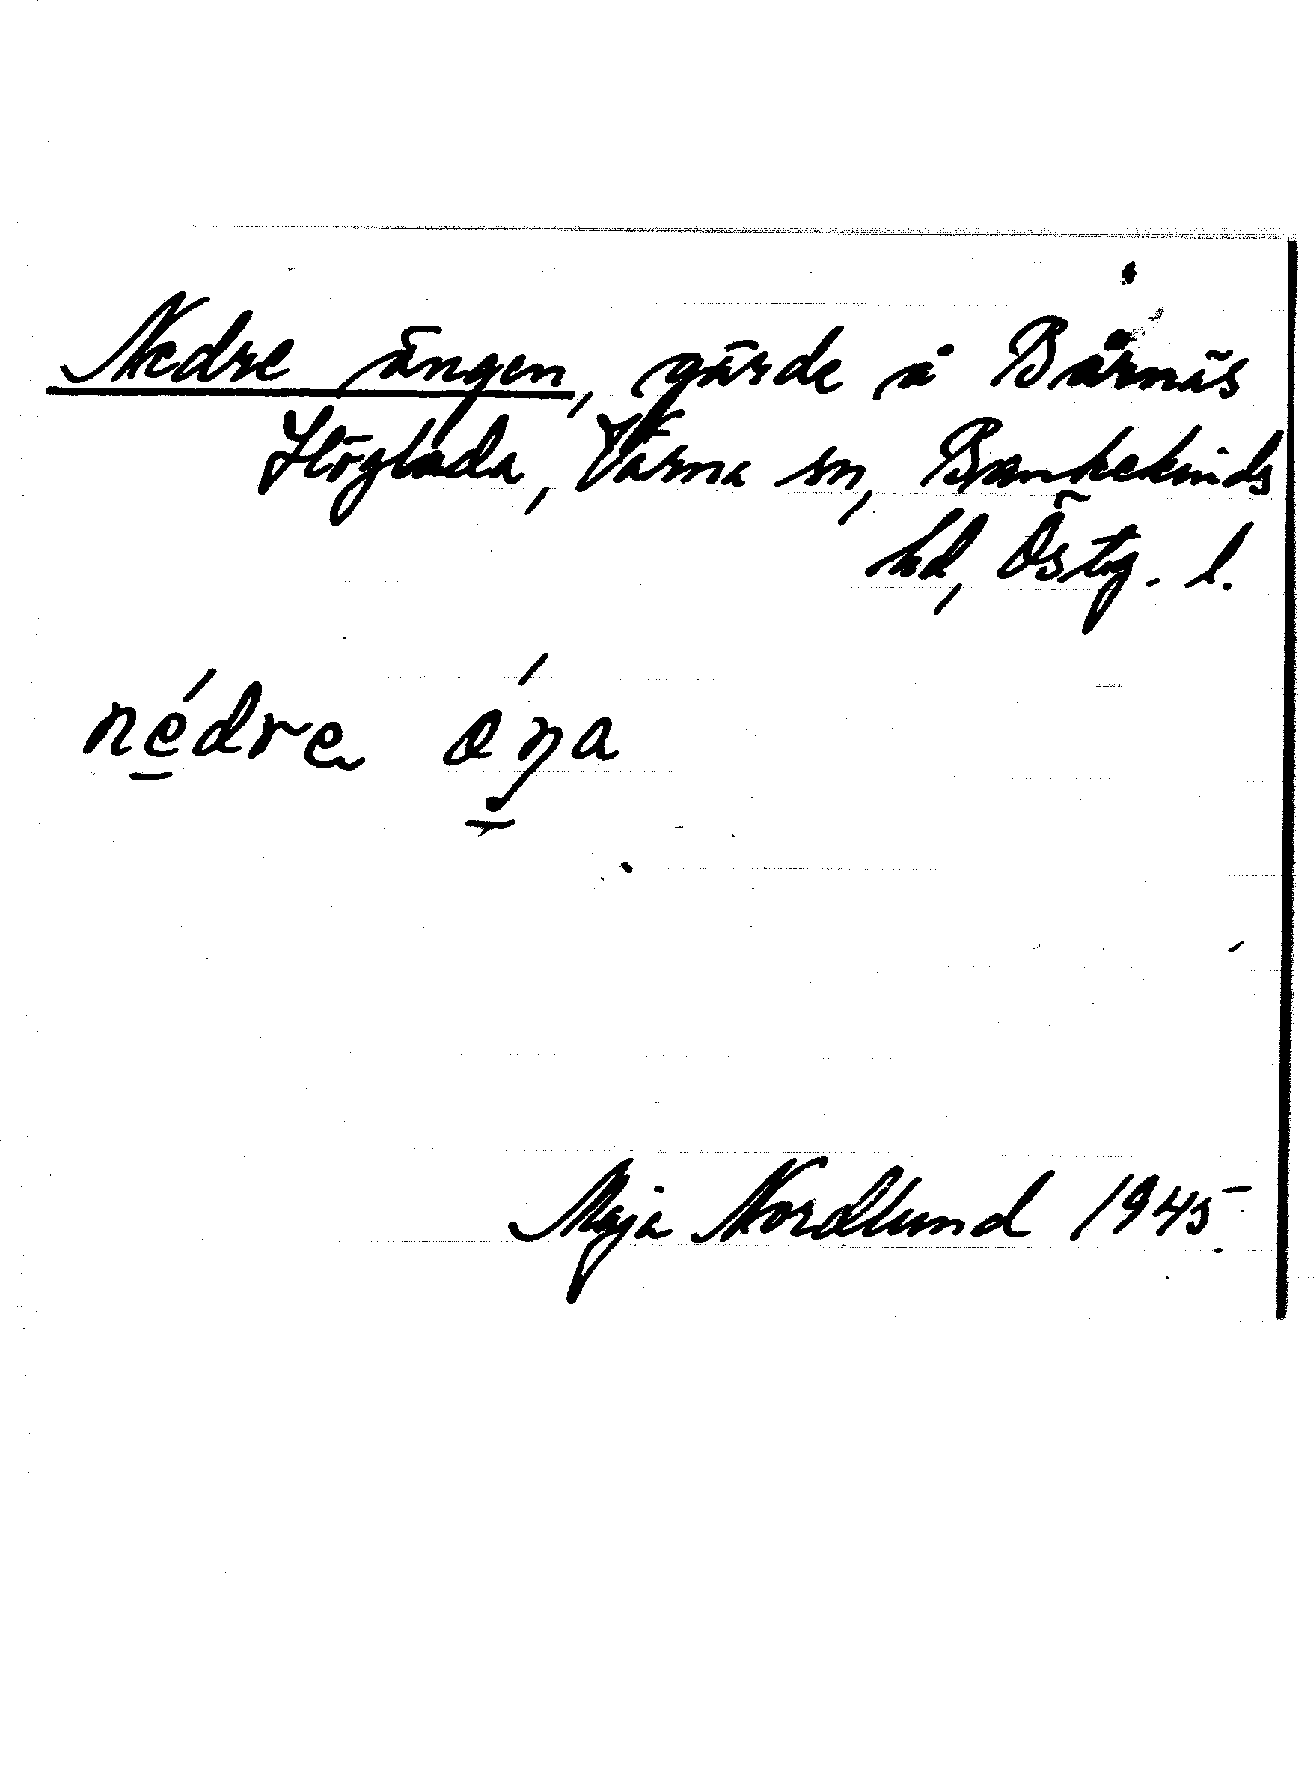 Nedre ängen, gärde å Bårnäs
Höglada, Värna sn, Bankekinds
hd, Östg. l.
nédre óŋa
Maja Nordlund 1945